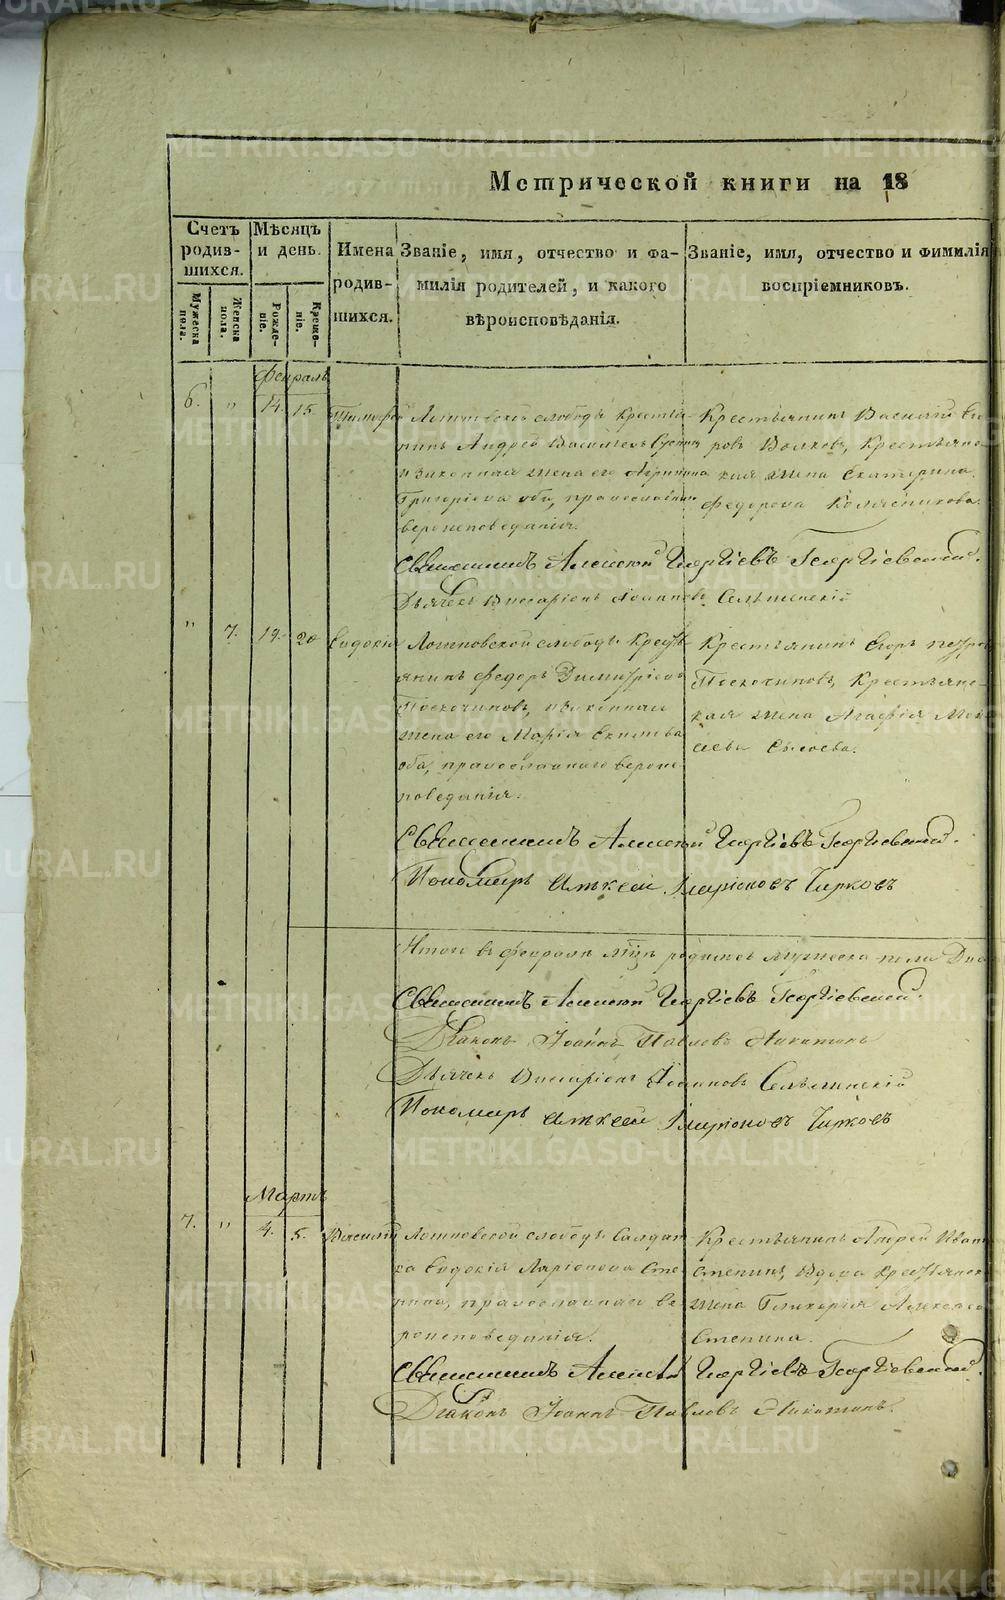 Метрической книги на 18
Счетъ родив-шихся.
Мужеска пола.
Женска пола.
Мѣсяцъ и день.
Рожде-ніе.
Креще-ніе.
Имена родив-шихся.
Званіе, имя, отчество и фа-
милія родителей, и какого
вѣроисповѣданія.
Званіе, имя, отчество и фимилія
воспріемниковъ.
Февраль
6. " 14. 15. Тимофей
слободы Крестья-
нинъ Андрей Васильевъ
и законная жена его Агрипина
Григоріева оба, православнаго
вероисповеданія.
Крестьянинъ Василій
ровъ Волковъ, Крестьянс
кая жена Екатерина
Федорова Колясникова.
Священникъ Алексей Георгіевъ Георгіевский.
Дьячекъ Висаріонъ Іоанновъ
" 7. 19. 20 Евдокія
слободы Крестъ-
янинъ Федоръ Димитріевъ
Поскочиновъ, и законная
жена его Марія
оба, православнаго вероис
поведанія.
Крестьянинъ Егоръ Петров
Поскочиновъ, Крестьянс-
кая жена Агафія Мои
сеева Сысоева.
Священникъ Алексей Георгіевъ Георгіевский.
Пономарь Алексей Иларіоновъ Чирковъ
Итого въ Феврале родилось мужеска пола
Священникъ Алексей Георгіевъ Георгіевский.
Діаконъ Іоаннъ Павловъ Никитинъ
Дьячекъ Висаріонъ Іоанновъ
Пономарь Алексей Иларіоновъ Чирковъ
Мартъ
7. " 4. 5. Василій
слободы Салдат
ка Евдокія Ларіонова Сте
пина, православнаго ве
роисповеданія.
Крестьянинъ Андрей Иван
Степинъ, Вдова Крестьянск
жена Гликерія Алексеев
Степина.
Священникъ Алексей Георгіевъ Георгіевский.
Діаконъ Іоаннъ Павловъ Никитинъ.
METRIKI.GASO-URAL.RU